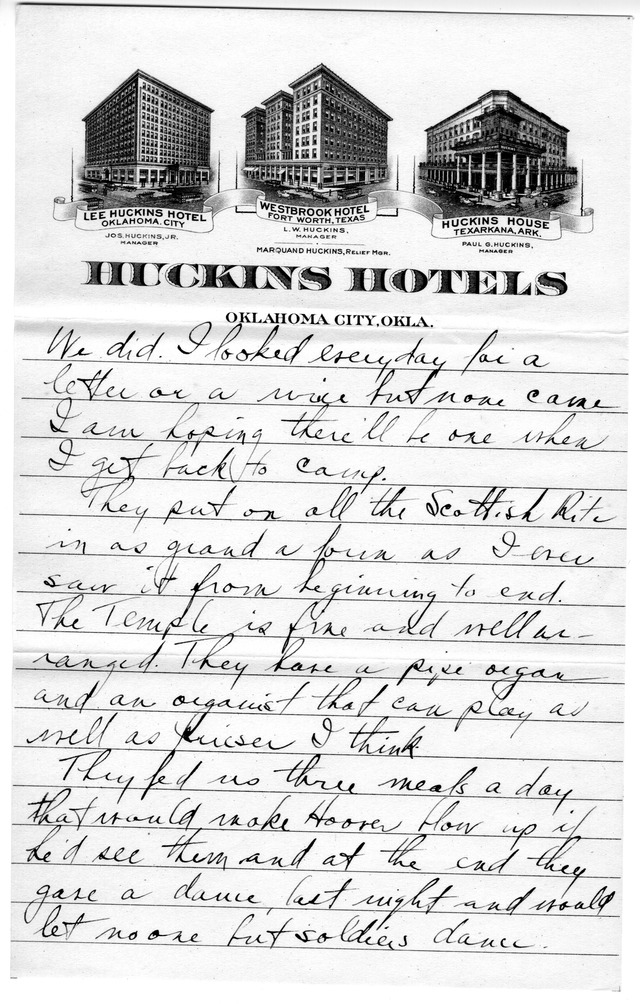 LEE HUCKINS HOTEL
OKLAHOMA CITY
JOS. HUCKINS, JR.
MANAGER
WESTBROOK HOTEL
FORT WORTH, TEXAS
L. W. HUCKINS,
MANAGER
MARQUAND HUCKINS, RELIEF MGR.
HUCKINS HOUSE
TEXARKANA, ARK.
PAUL G. HUCKINS,
MANAGER
HUCKINS HOTELS
OKLAHOMA CITY, OKLA.
We did. I looked everyday for a
letter or a wire but none came
I am hoping there'll be one when
I get back to camp.
They put on all the Scottish Rite
in as grand a form as I ever
saw it from beginning to end.
The Temple is fine and well ar-
ranged. They have a pipe organ
and an organist that can play as
well as I think
They fed us three meals a day
that would make Hoover blow up if
he'd see them and at the end they
gave a dance, last night and would
let no one but soldiers dance.